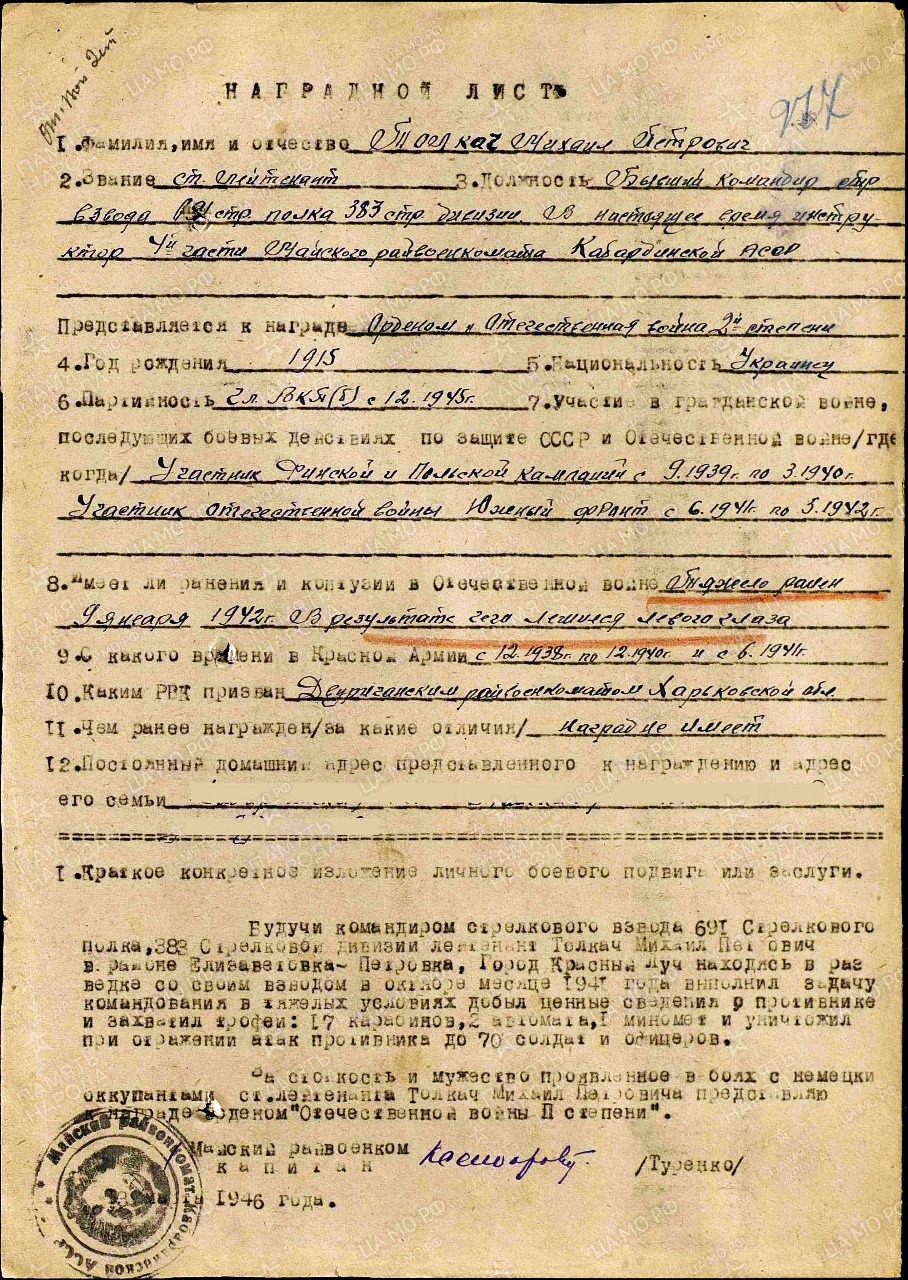 277
НАГРАДНОЙ ЛИСТ
I.Фамилия,имя и отчество Толкач Михаил Петрович
2.Звание ст. лейтенант 3.Должность Бывший командир стр
взвода 691 стр. полка 383 стр. дивизии В настоящее время инстру-
ктор 4й части Майского райвоенкомата Кабардинской АССР
Представляется к награде Орденом „Отечественная война 2й степени
4.Год рождения 1915 5.Национальность Украинец
6.Партийность чл. ВКП(б) с 12.1945г. 7.Участие в гражданской войне,
последующих боевых действиях по защите СССР и Отечественной войне/где
когда/ Участник Финской и Польской кампаний с 9.1939г. по 3.1940г.
Участник отечественной войны Южный фронт с 6.1941г. по 5.1942г.
8.Имеет ли ранения и контузии в Отечественной войне Тяжело ранен
9 января 1942г. В результате чего лешился левого глаза
9.С какого времени в Красной Армии с 12.1938г. по 12.1940г. и с 6.1941г.
10.Каким РВК призван райвоенкоматом Харьковской обл.
II.Чем ранее награжден/за какие отличия/ Наград не имеет
I2.Постоянный домашний адрес представленного к награждению и адрес
его семьи
I.Краткое конкретное изложение личного боевого подвига или заслуги.
Будучи командиром стрелкового взвода 691 Стрелкового
полка,383 Стрелковой дивизии лейтенант Толкач Михаил Петрович
в районе Елизаветовка-Петровка, Город Красный Луч находясь в раз
ведке со своим взводом в октябре месяце 1941 года выполнил задачу
командования в тяжелых условиях добыл ценные сведения о противнике
и захватил трофеи: I7 карабинов,2 автомата,I миномет и уничтожил
при отражении атак противника до 70 солдат и офицеров.
За стойкость и мужество проявленное в боях с немецки
оккупантами ст.лейтенанта Толкач Михаил Петровича представляю
к награде орденом"Отечественной войны П степени".
Майский райвоенком
капитан /Туренко/
1946 года.
Майский райвоенкомат Кабардинской АССР